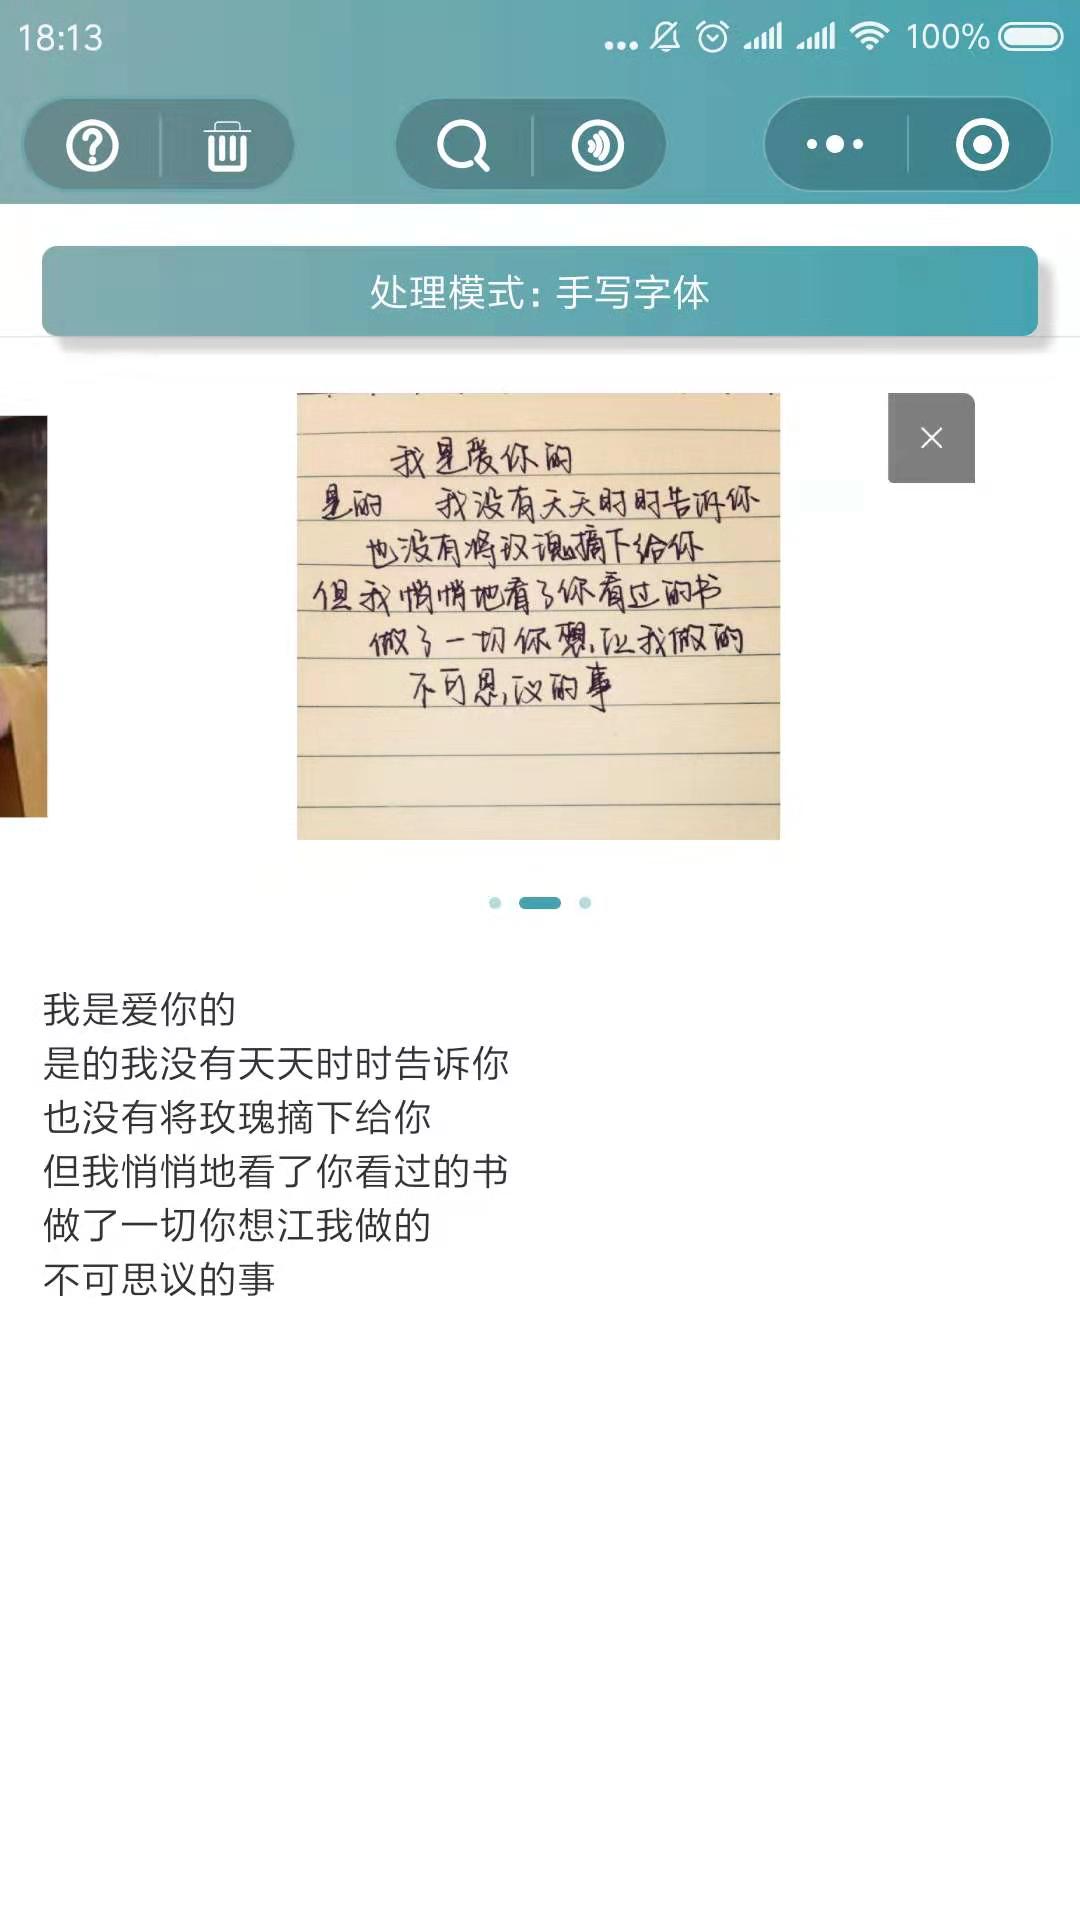 18:13
100%
处理模式：手写字体
我是爱你的
是的 我没有天天时时告诉你
也没有将玫瑰摘下给你
但我悄悄地看了你看过的书
做了一切你想让我做的
不可思议的事
我是爱你的
是的我没有天天时时告诉你
也没有将玫瑰摘下给你
但我悄悄地看了你看过的书
做了一切你想江我做的
不可思议的事